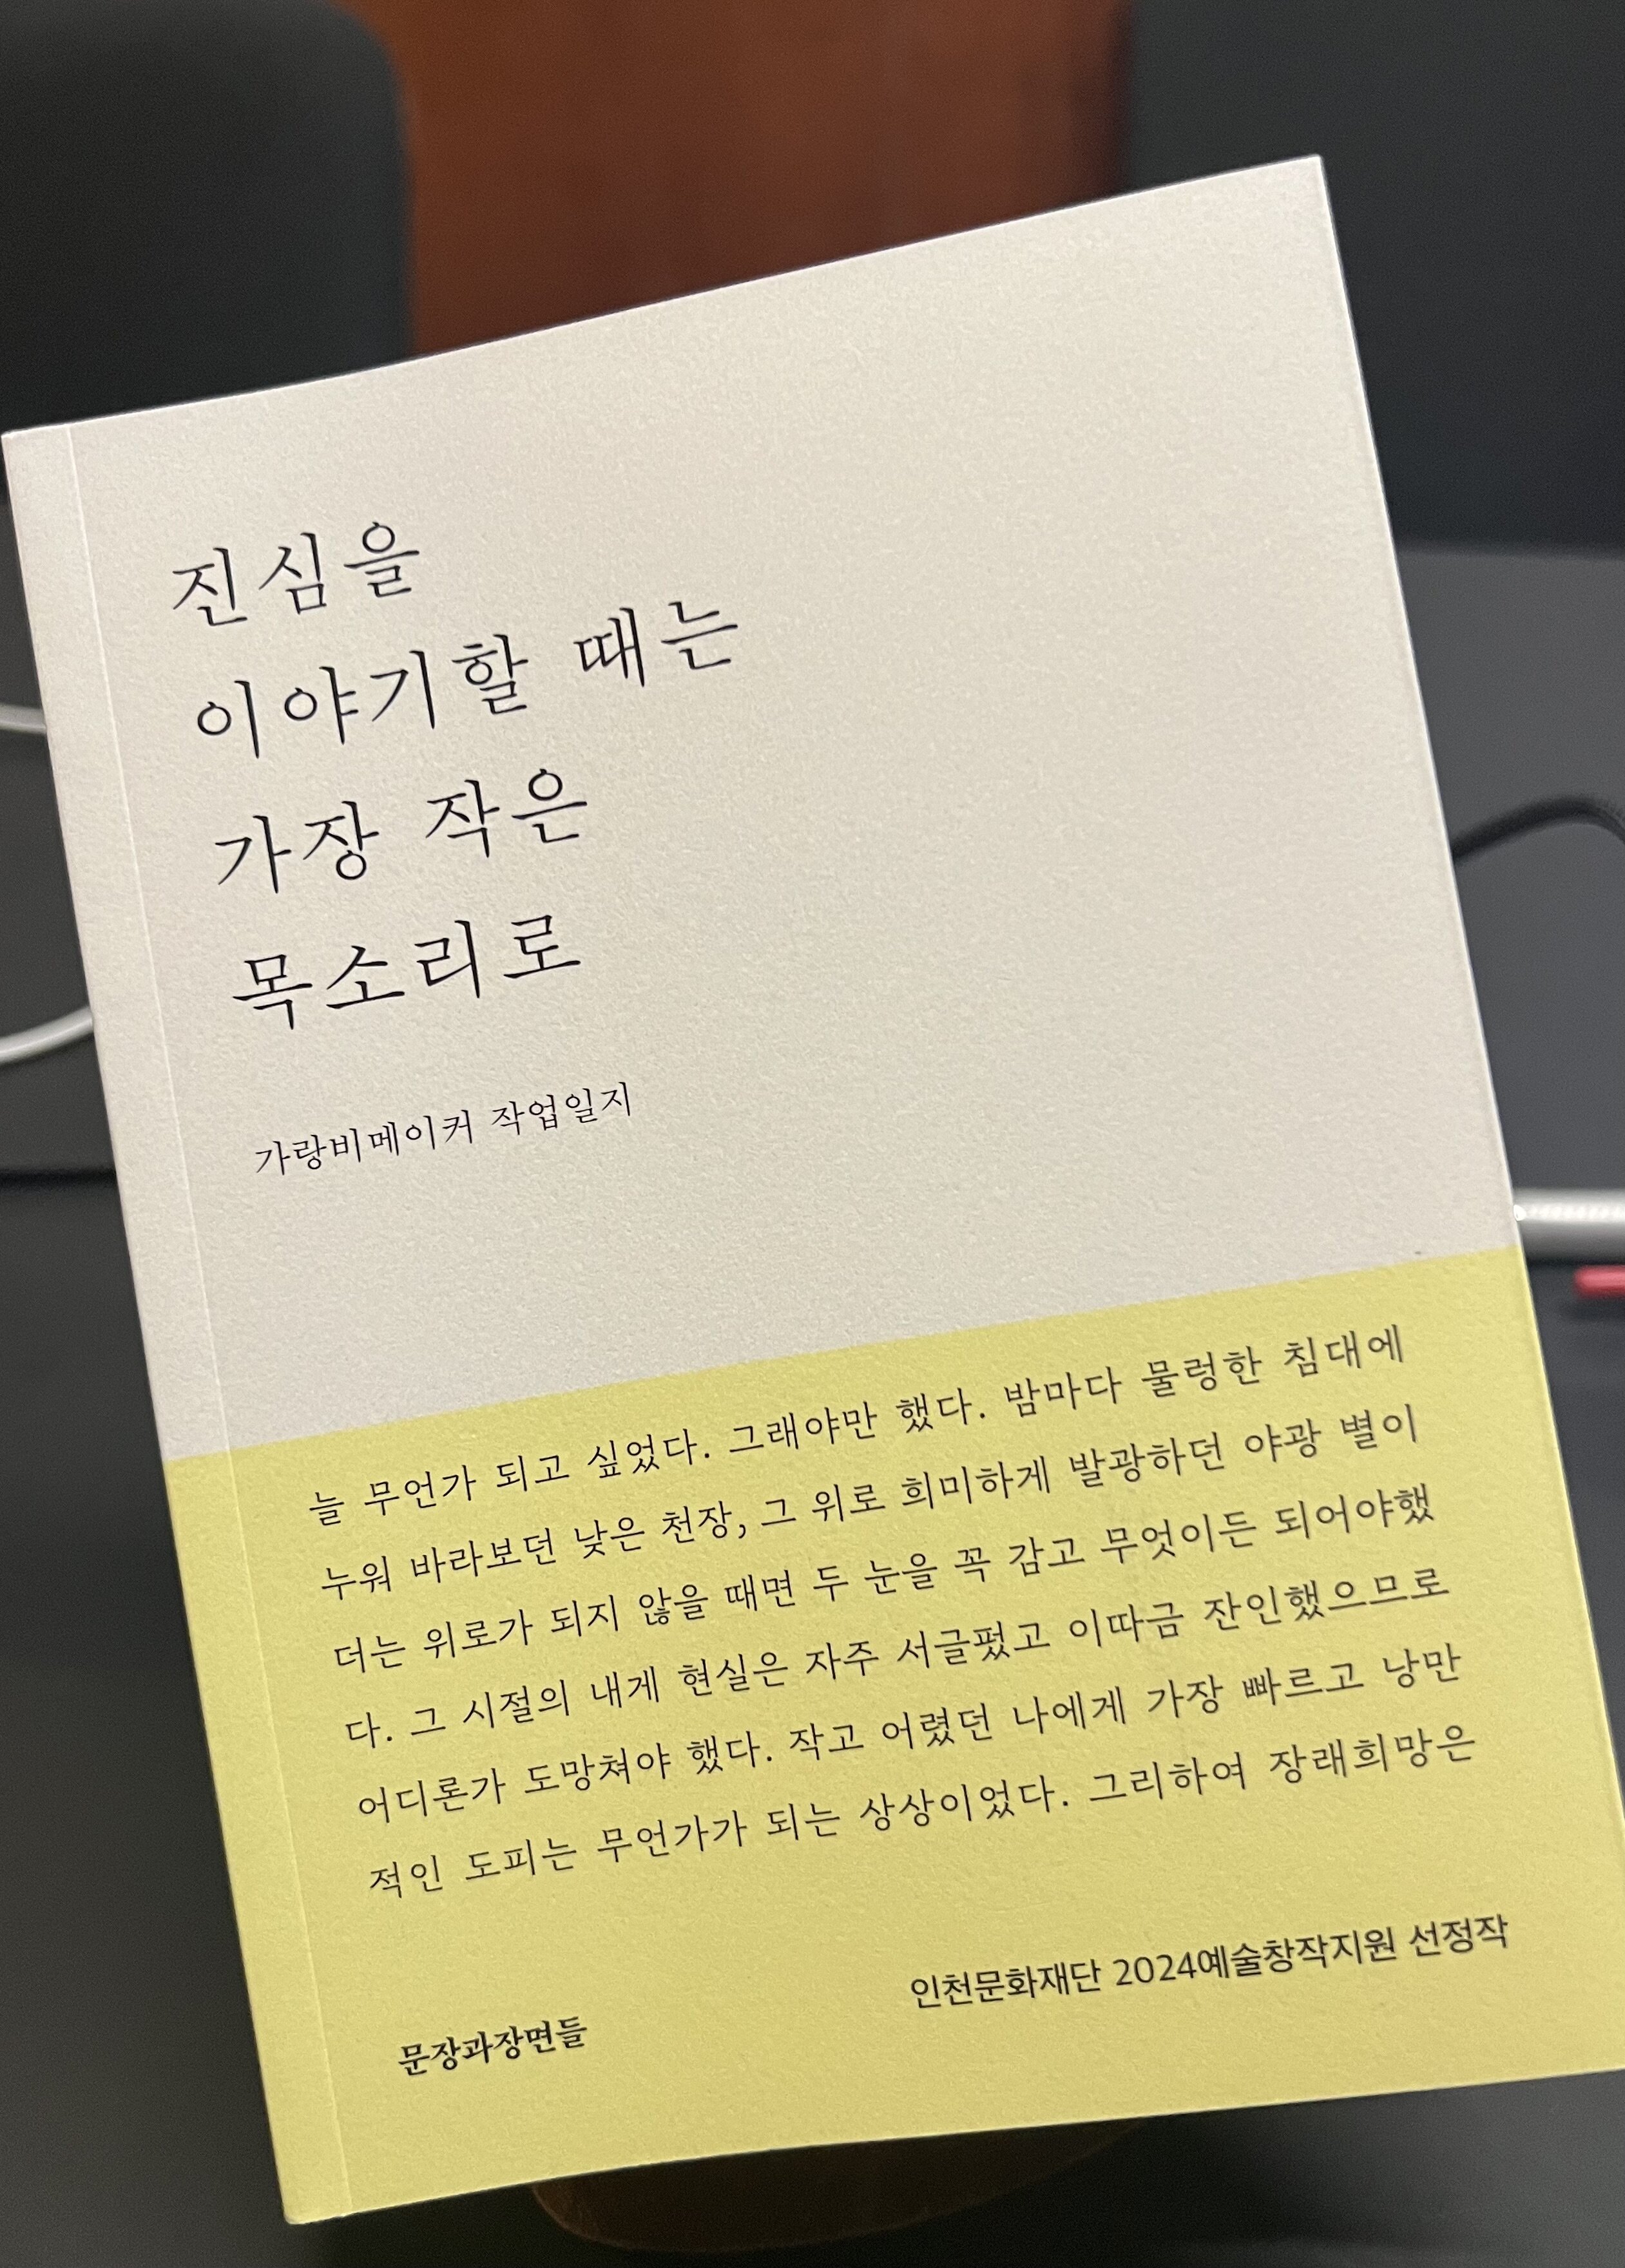 진심을
이야기할 때는
가장 작은
목소리로
가랑비메이커 작업일지
늘 무언가 되고 싶었다. 그래야만 했다. 밤마다 물렁한 침대에
누워 바라보던 낮은 천장, 그 위로 희미하게 발광하던 야광 별이
더는 위로가 되지 않을 때면 두 눈을 꼭 감고 무엇이든 되어야했
다. 그 시절의 내게 현실은 자주 서글펐고 이따금 잔인했으므로
어디론가 도망쳐야 했다. 작고 어렸던 나에게 가장 빠르고 낭만
적인 도피는 무언가가 되는 상상이었다. 그리하여 장래희망은
인천문화재단 2024예술창작지원 선정작
문장과장면들